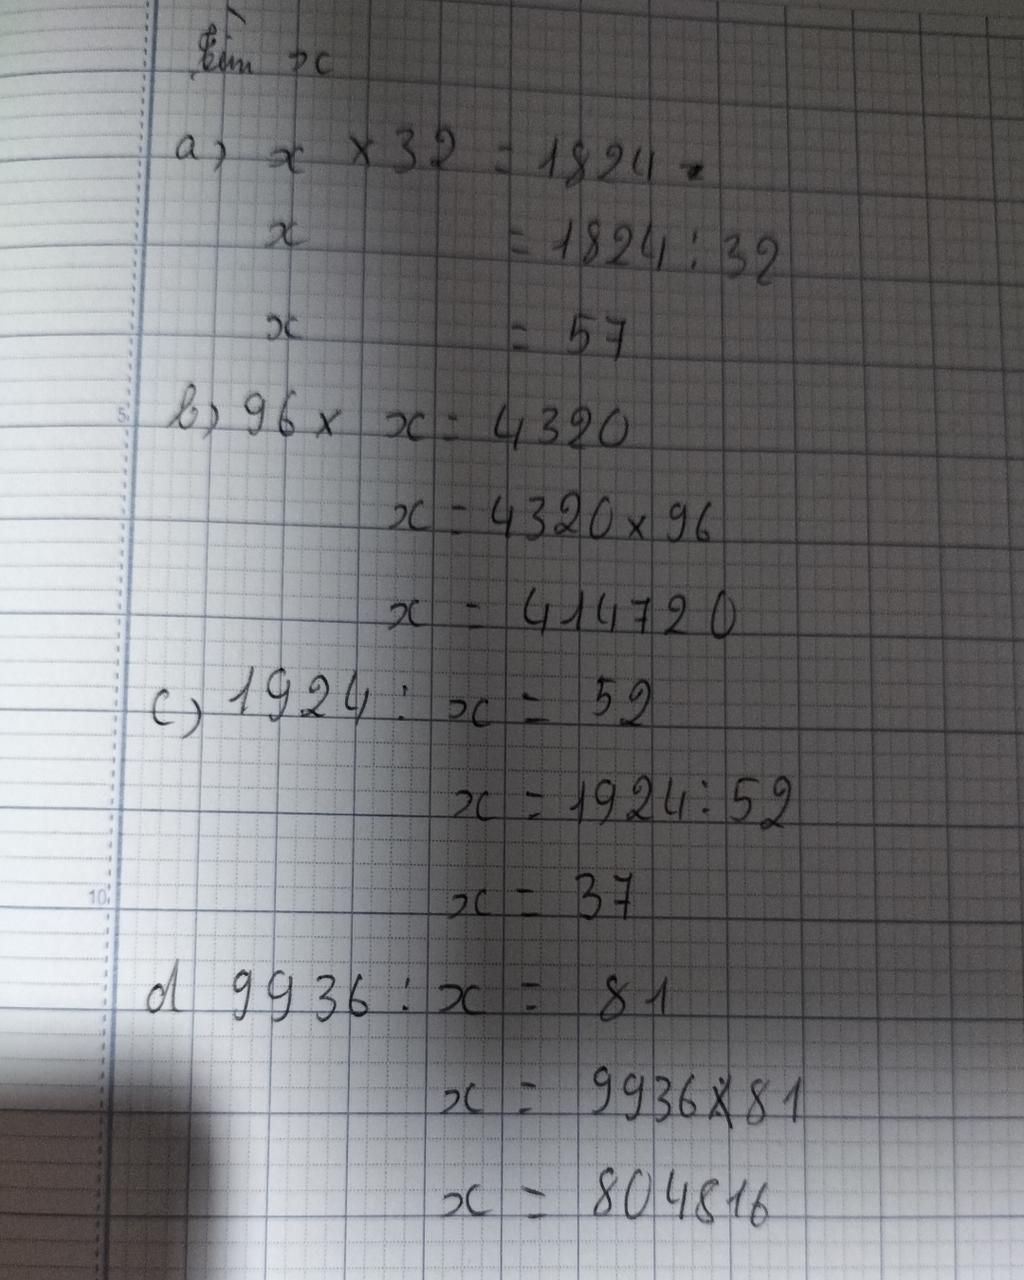 tìm x
a) x × 32 = 1824
x = 1824 : 32
x = 57
b) 96 × x = 4320
x = 4320 × 96
x = 414720
c) 1924 : x = 52
x = 1924 : 52
x = 37
d 9936 : x = 81
x = 9936 × 81
x = 804816
5
10